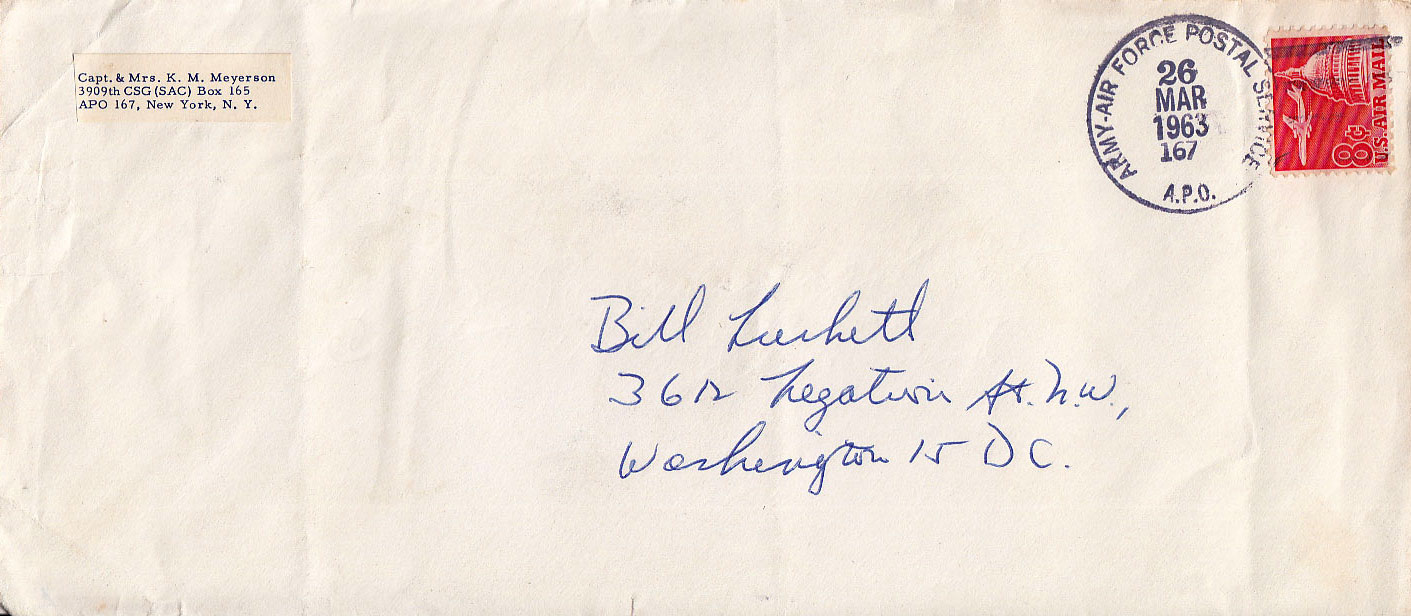 Capt. & Mrs. K. M. Meyerson
3909th CSG (SAC) Box 165
APO 167, New York, N. Y.
ARMY-AIR FORCE POSTAL SERVICE
26
MAR
1963
167
A.P.O.
8¢
U.S. AIR MAIL
Bill Luckett
3612 Legation St. N.W.,
Washington 15 DC.